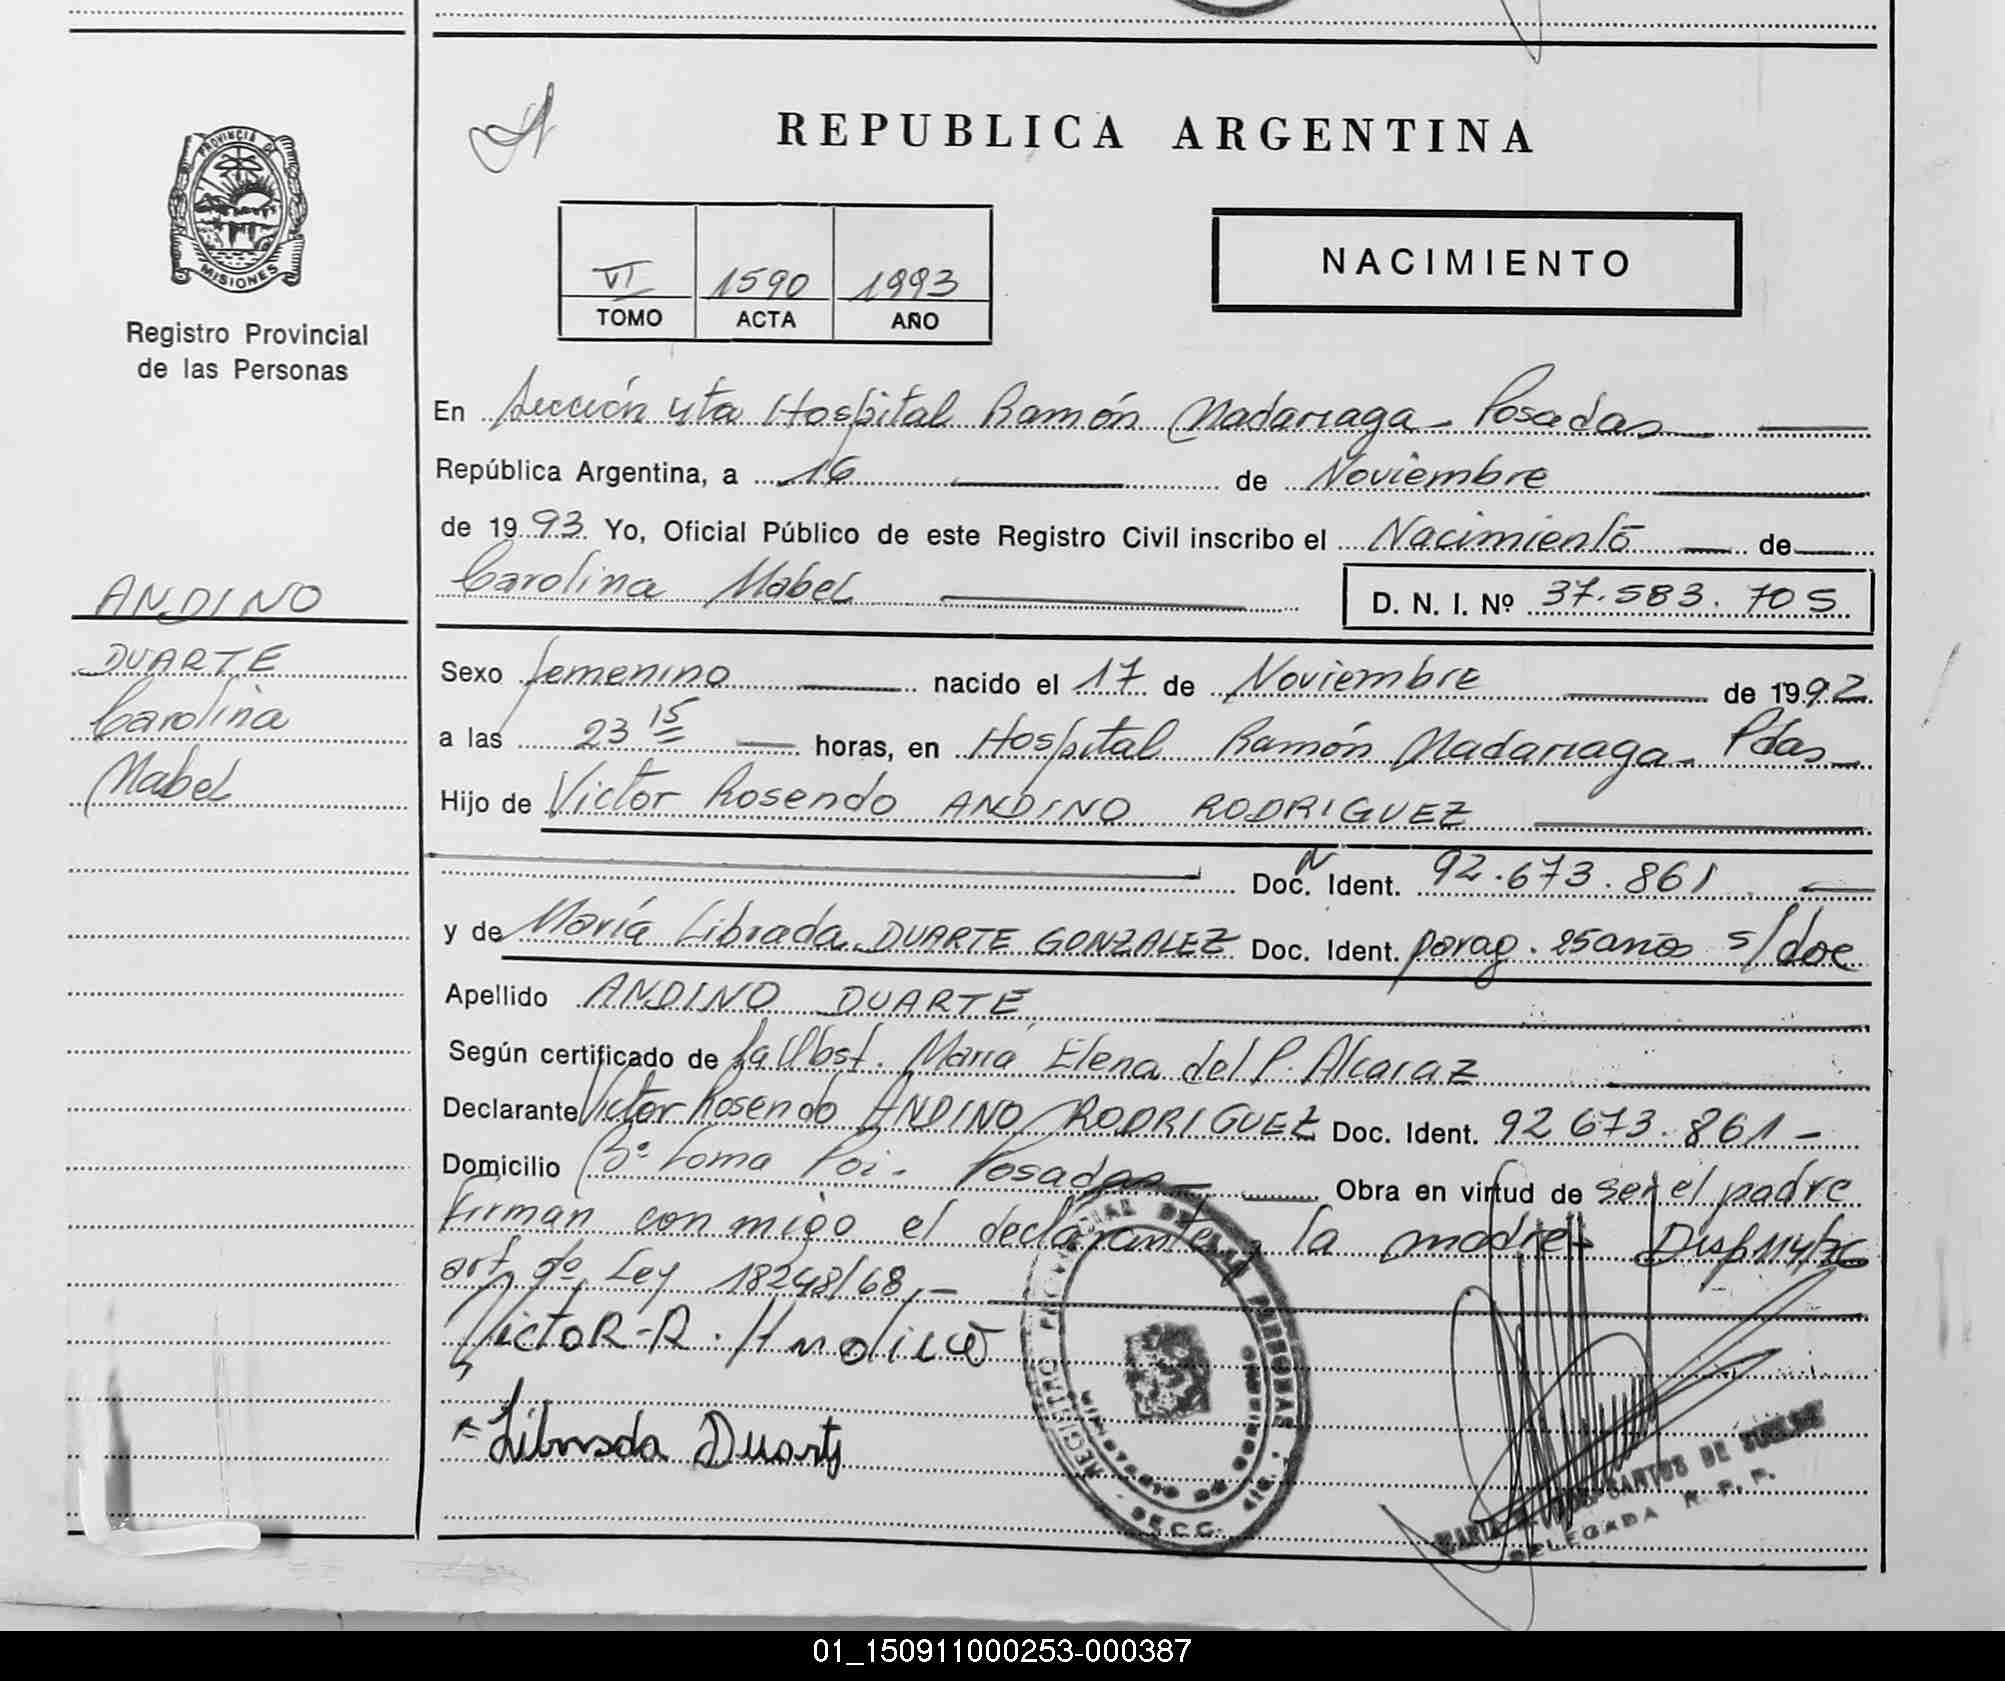 REPUBLICA ARGENTINA
PROVINCIA DE
MISIONES
Registro Provincial
de las Personas
VI 1590 1993
TOMO ACTA AÑO
NACIMIENTO
En Sección 4ta Hospital Ramón Madariaga - Posadas
República Argentina, a 16 de Noviembre
de 1993 Yo, Oficial Público de este Registro Civil inscribo el Nacimiento de
Carolina Mabel D. N. I. Nº 37.583.705
ANDINO
DUARTE
Carolina
Mabel
Sexo femenino nacido el 17 de Noviembre de 1992
a las 23 15 horas, en Hospital Ramón Madariaga - Pdas
Hijo de Victor Rosendo ANDINO RODRIGUEZ
Doc. Ident. 92.673.861
y de María Librada DUARTE GONZALEZ Doc. Ident. parag. 25 años s/doc
Apellido ANDINO DUARTE
Según certificado de la Obst. María Elena del P. Alcaraz
Declarante Victor Rosendo ANDINO RODRIGUEZ Doc. Ident. 92 673.861 -
Domicilio Bº Loma Poi - Posadas Obra en virtud de ser el padre
Firman con migo el declarante y la madre
art. Ley 18248/68.-
Victor-R. Andino
Librada Duarte
REGISTRO PROVINCIAL DE LAS PERSONAS
MINISTERIO DE GOBIERNO
SECC.
SANTOS DE
DELEGADA R. P. P.
01_150911000253-000387